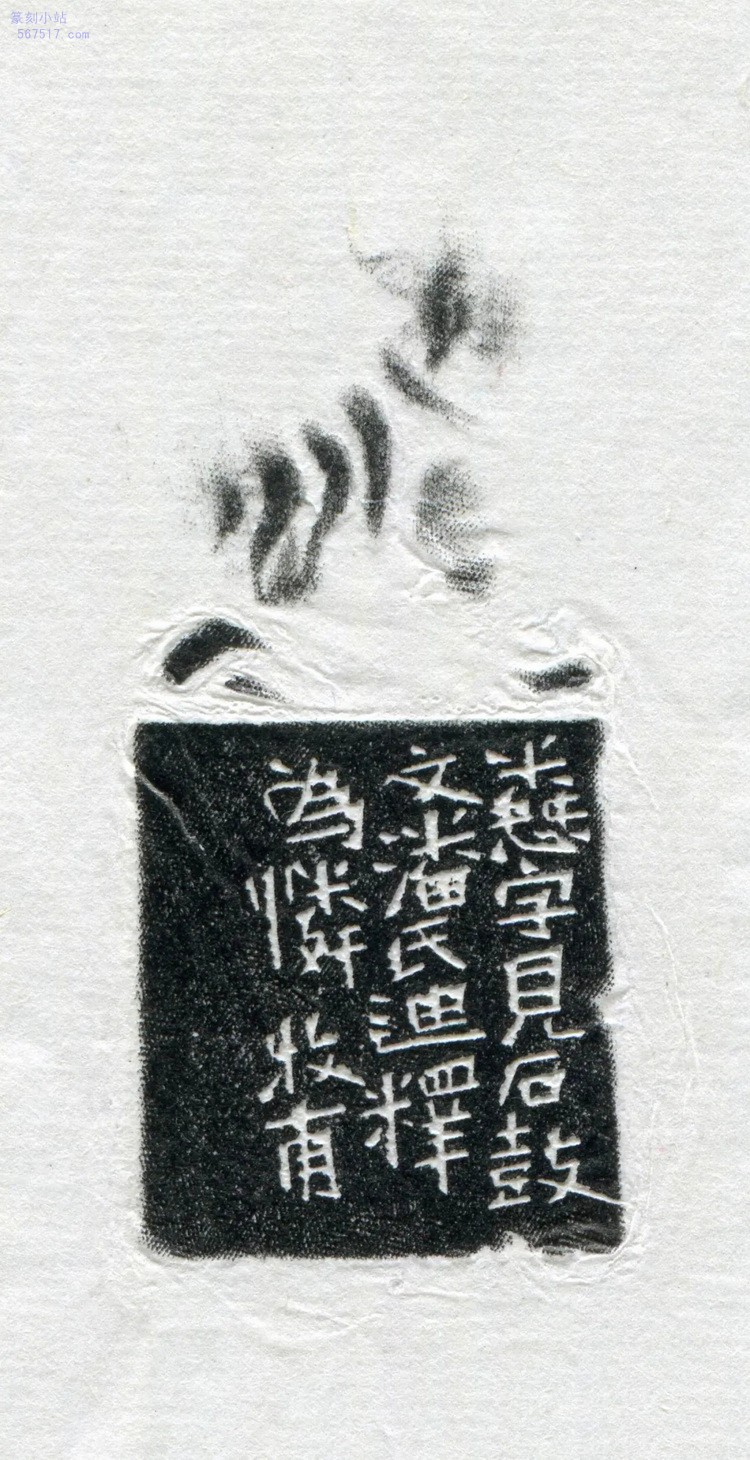 篆刻小站
567517.com
字見石鼓
文潘氏迪釋
為憐 牧甫